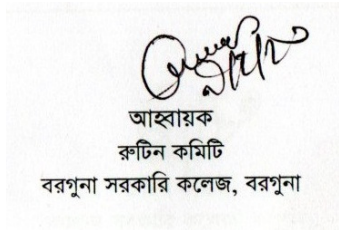 আহবায়ক
রুটিন কমিটি
বরগুনা সরকারি কলেজ, বরগুনা